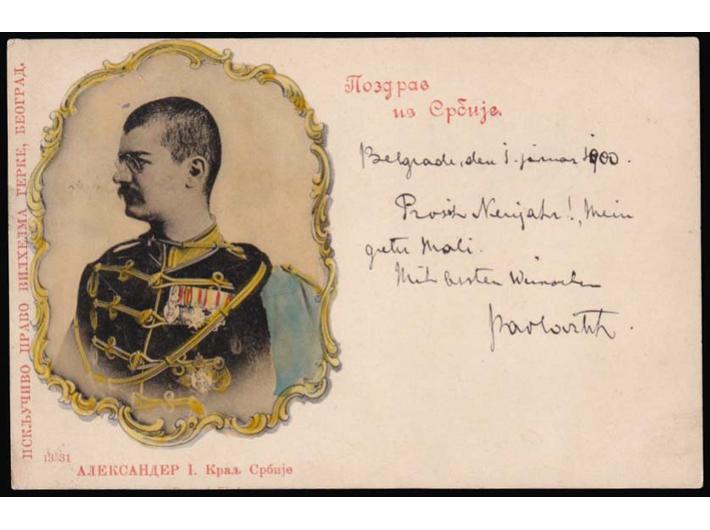 ИСКЉУЧИВО ПРАВО ВИЛХЕЛМА ГЕРКЕ, БЕОГРАД.
Поздрав
из Србије.
Belgrade, den 1. januar 1900.
Prosit Neujahr!, Mein
Mali.
Mit besten Wünschen
13531
АЛЕКСАНДЕР I. Краљ Србије